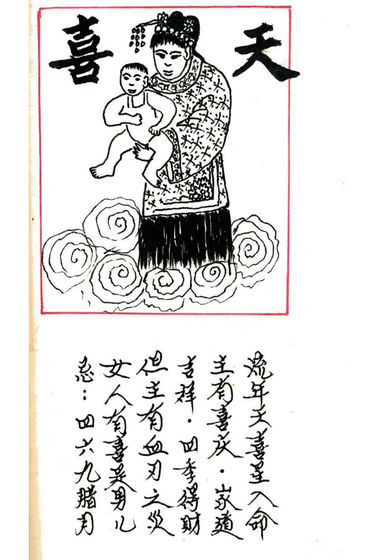 天喜
流年天喜星入命
主有喜庆·家道
吉祥·四季得财
但主有血刃之災
女人有喜是男儿
忌：四六九腊月